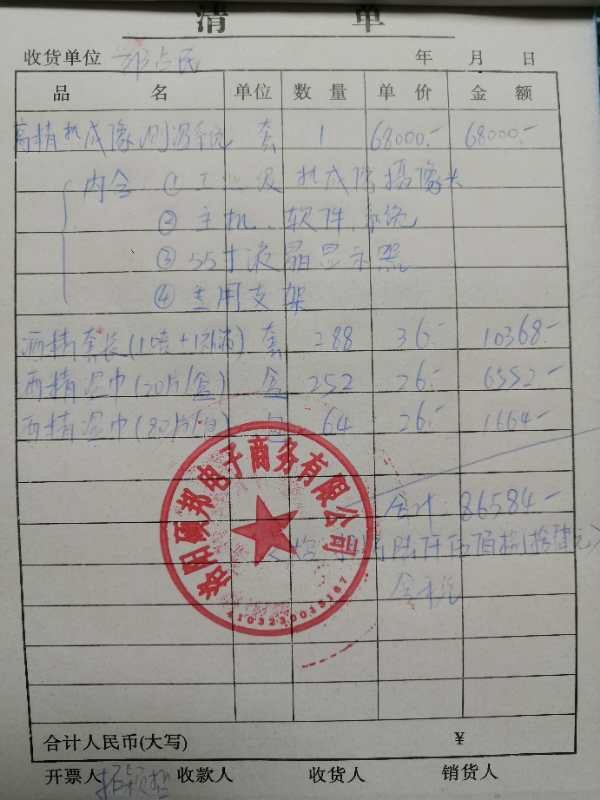 清 单
收货单位 年 月 日
品 名 单位 数 量 单 价 金 额
高精热成像测温系统 套 1 68000.- 68000.-
内含 ①工业级热成像摄像头
②主机、软件、系统
③55寸液晶显示器
④专用支架
酒精套装 套 288 36.- 10368.-
酒精湿巾(20片/盒) 盒 252 26.- 6552.-
酒精湿巾(80片/包) 包 64 26.- 1664.-
合计: 86584.-
含税
洛阳硕邦电子商务有限公司
合计人民币(大写) ¥
开票人 收款人 收货人 销货人